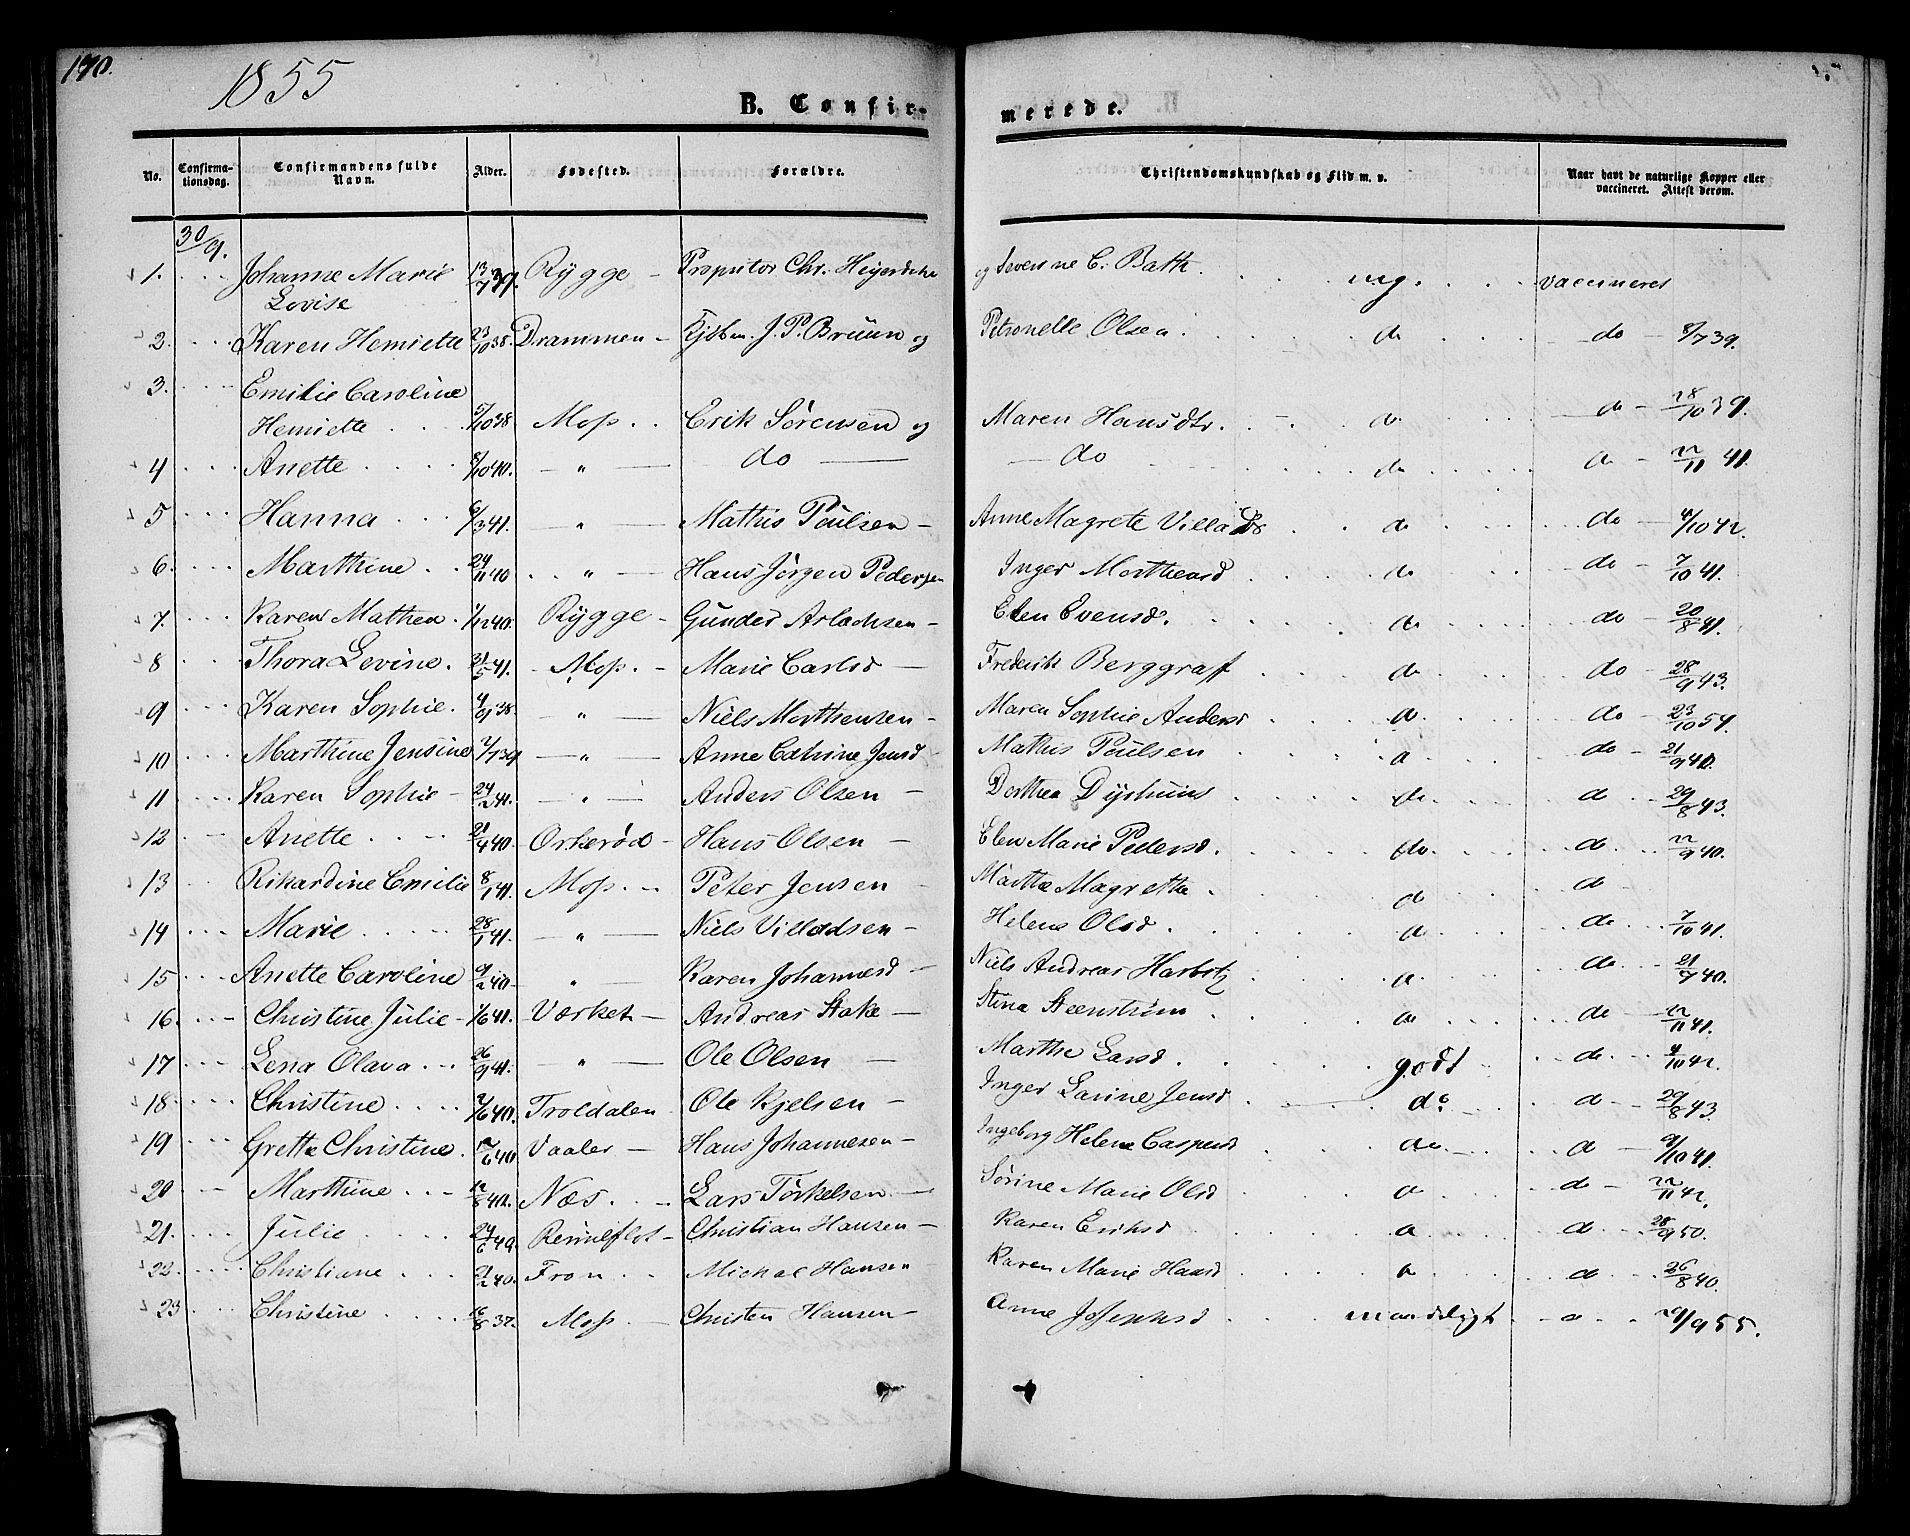 170.
1855
B. Confirmerede.
No. Confirmationsdag. Confirmandens fulde Navn. Alder. Fødested. Forældre. Christendomskundskab og Flid m. v. Naar havt de naturlige Kopper eller vaccineret. Attest derom.
30/9.
1. Johanne Marie 13/7 39. Rygge Chr. og C. Bath mg. vaccineret
Lovise
2. Karen Henriette 23/10 38. Drammen Kjøbm. J. P. Bruun og Petronelle Olsen do do 8/7 39.
3. Emilie Caroline
Henriette 5/10 38 Moss Erik Sørensen og Maren Hansdtr. do do 28/10 39.
4 Anette 8/10 40. " do do do do 22/11 41.
5 Hanna 6/3 41. " Mathis Poulsen Anne Magrete do do 4/10 42.
6. Marthine 24/11 40 " Hans Jørgen Pedersen Inger do do 7/10 41.
7. Karen Mathea 1/12 40. Rygge Gunder Arlachsen Elen Evensd. do do 20/8 41.
8 Thora Levine. Moss. Marie Carlsd Frederik Berggraff do do 28/9 43.
9 Karen Sophie. 4/9 38. " Niels Morthensen Maren Sophie Andersd do do 23/10 54.
10 Marthine Jensine 2/7 39 " Anne Cathrine Jensd Mathis Poulsen do do 21/9 40.
11 Karen Sophie 24/2 41. " Anders Olsen Dorthea do do 29/8 43.
12 Anette 21/4 40. Orkerød Hans Olsen Elen Marie Pedersd. do do 22/9 40.
13 Rikardine Emilie 8/1 41. Moss. Peter Jensen Marthe Magrethe do do
14 Marie 28/1 41. " Niels Villadsen Helene Olsd. do do 7/10 41.
15 Anette Caroline 9/2 40. " Karen Johannesd Niels Andreas do do 21/7 40.
16. Christine Julie 1/6 41. Værket Andreas Stake Stina Steenstrøm do do 22/11 41.
17 Lena Olava 26/9 41. " Ole Olsen Marthe Larsd. godt do 4/10 42.
18. Christine 2/6 40. Troldalen Ole Kjelsen Inger Larine Jensd do do 29/8 43
19 Grethe Christine. Vaaler Hans Johannesen Ingeborg Helene Caspersd do do 9/10 41.
20 Marthine 12/8 42. Næs. Lars Torkelsen Sørine Marie Olsd do do 22/11 42.
21. Julie 24/6 40. Christian Hansen Karen Eriksd do do 28/9 50.
22. Christiane Fron Michal Hansen Karen Marie Hansd do do 26/8 40.
23 Christine 16/8 37. Moss. Christen Hansen Anne Josephsd maadeligt do 29/9 55.